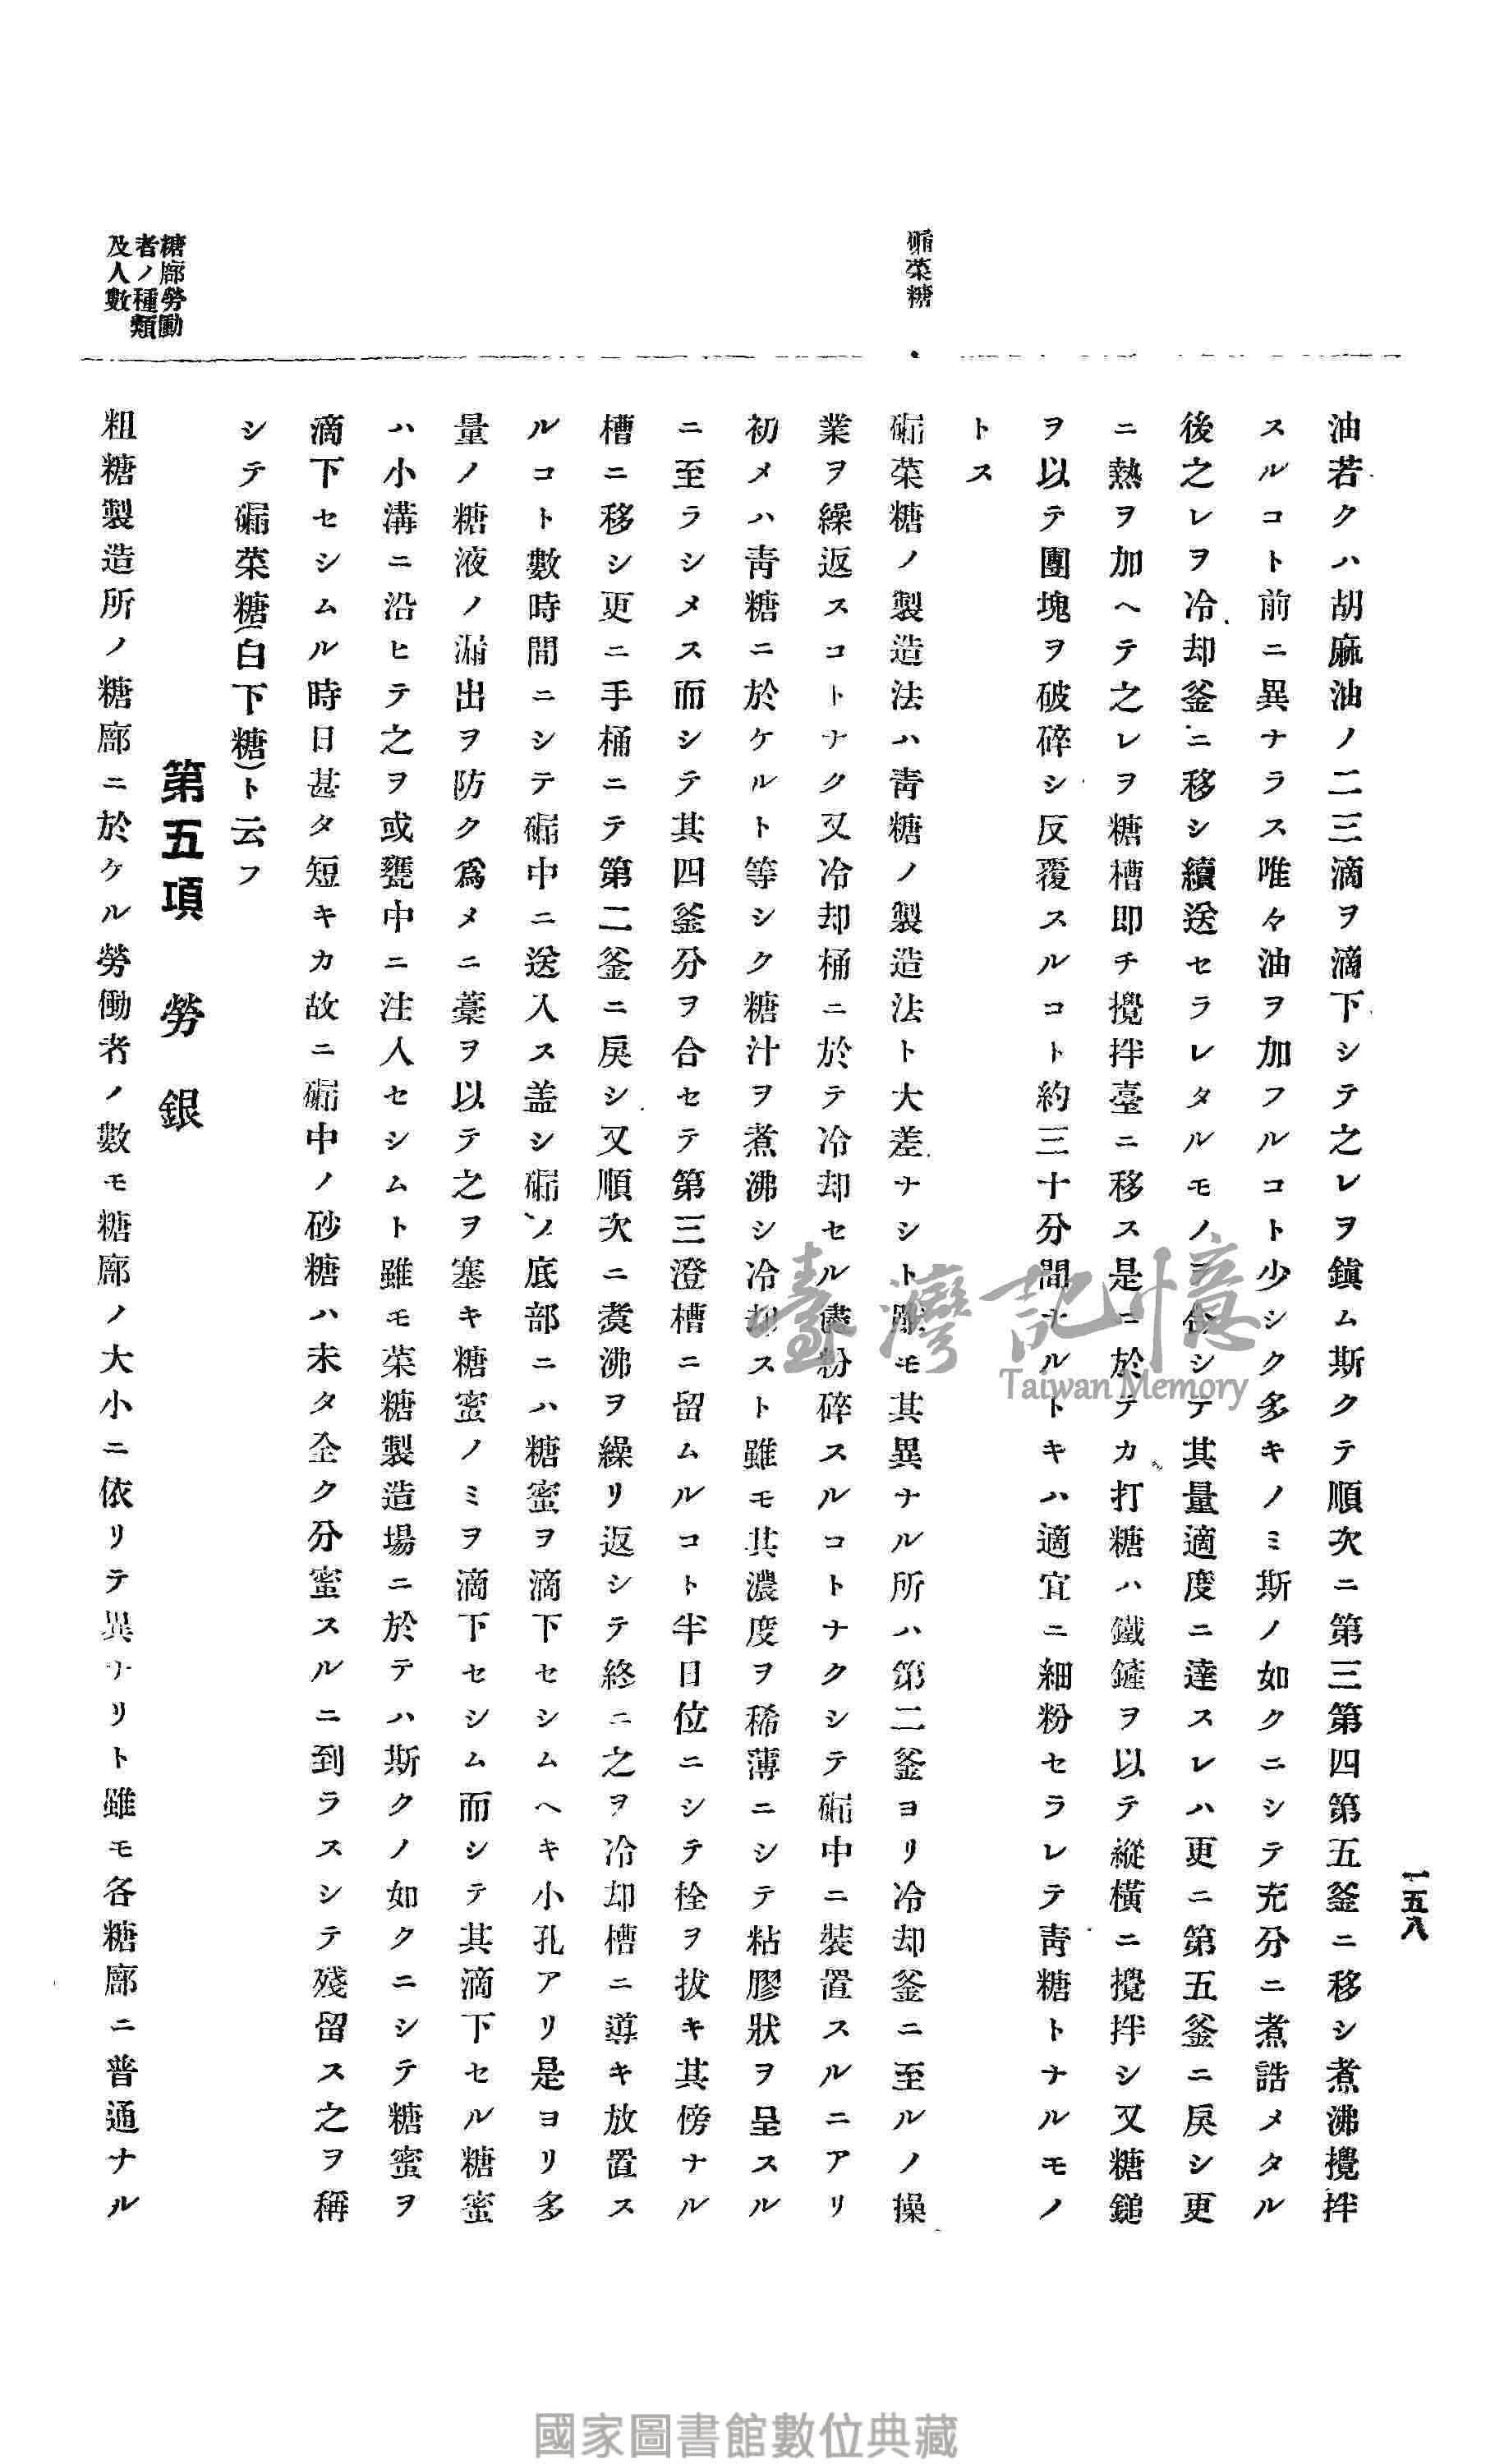 一五八
油若クハ胡麻油ノ二三滴ヲ滴下シテ之レヲ鎭ム斯クテ順次ニ第三第四第五釜ニ移シ煮沸攪拌
スルコト前ニ異ナラス唯々油ヲ加フルコト少シク多キノミ斯ノ如クニシテ充分ニ煮誥メタル
後之レヲ冷却釜ニ移シ續送セラレタルモノヲ合シテ其量適度ニ達スレハ更ニ第五釜ニ戾シ更
ニ熱ヲ加ヘテ之レヲ糖槽即チ攪拌臺ニ移ス是ニ於テカ打糖ハ鐵鏟ヲ以テ縱橫ニ攪拌シ又糖鎚
ヲ以テ團塊ヲ破碎シ反覆スルコト約三十分間ナルトキハ適宜ニ細粉セラレテ靑糖トナルモノ
トス
硧菜糖
硧菜糖ノ製造法ハ靑糖ノ製造法ト大差ナシト雖モ其異ナル所ハ第二釜ヨリ冷却釜ニ至ルノ操
業ヲ繰返スコトナク又冷却桶ニ於テ冷却セル儘粉碎スルコトナクシテ硧中ニ裝置スルニアリ
初メハ靑糖ニ於ケルト等シク糖汁ヲ煮沸シ冷却スト雖モ其濃度ヲ稀薄ニシテ粘膠狀ヲ呈スル
ニ至ラシメス而シテ其四釜分ヲ合セテ第三澄槽ニ留ムルコト半日位ニシテ栓ヲ拔キ其傍ナル
槽ニ移シ更ニ手桶ニテ第二釜ニ戾シ又順次ニ煑沸ヲ繰リ返シテ終ニ之ヲ冷却槽ニ導キ放置ス
ルコト數時間ニシテ硧中ニ送入ス盖シ硧ノ底部ニハ糖蜜ヲ滴下セシムヘキ小孔アリ是ヨリ多
量ノ糖液ノ漏出ヲ防ク爲メニ藁ヲ以テ之ヲ塞キ糖蜜ノミヲ滴下セシム而シテ其滴下セル糖蜜
ハ小溝ニ沿ヒテ之ヲ或甕中ニ注入セシムト雖モ菜糖製造場ニ於テハ斯クノ如クニシテ糖蜜ヲ
滴下セシムル時日甚タ短キカ故ニ硧中ノ砂糖ハ未タ全ク分蜜スルニ到ラスシテ殘留ス之ヲ稱
シテ硧菜糖(白下糖)ト云フ
第五項 勞銀
糖廍勞働
者ノ種類
及人數
粗糖製造所ノ糖廍ニ於ケル勞働者ノ數モ糖廍ノ大小ニ依リテ異ナリト雖モ各糖廍ニ普通ナル
臺灣記憶
Taiwan Memory
國家圖書館數位典藏